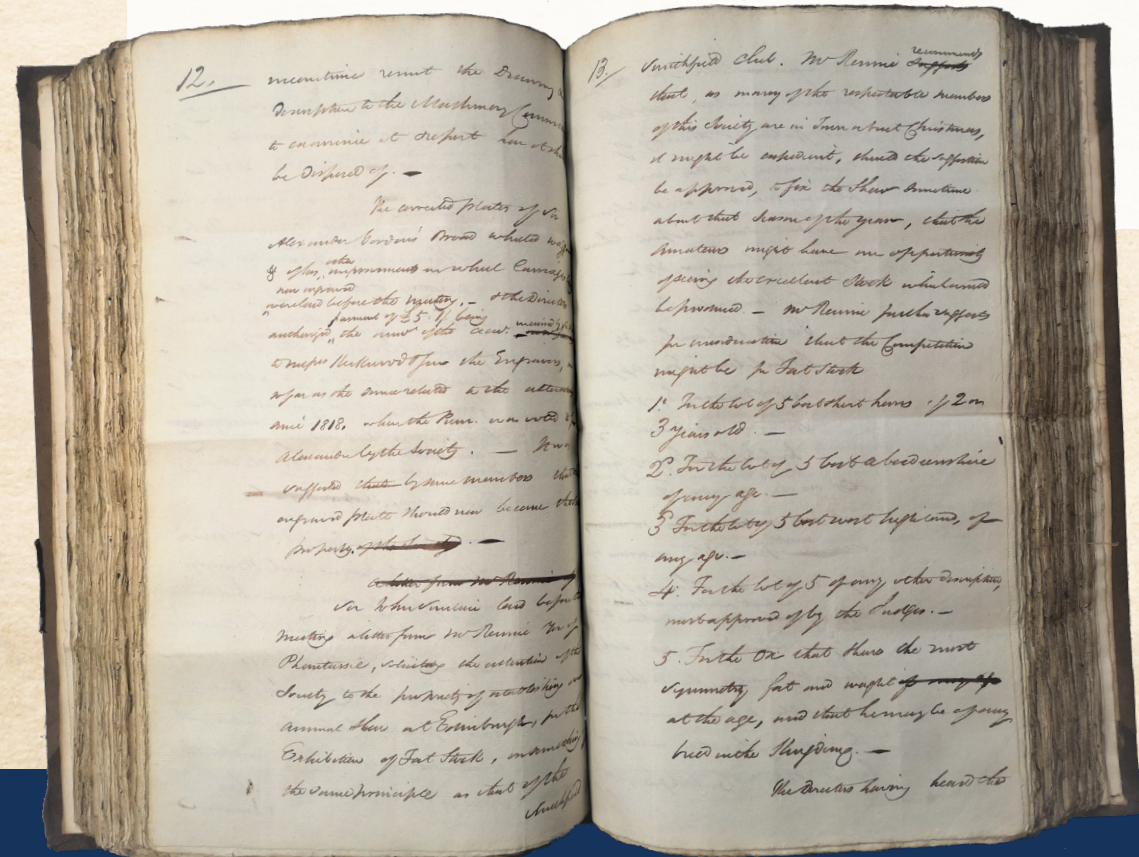 12.
meantime remit the Drawing &
Description to the Machinery Comm
to examine & report how it sh
be disposed of. —
The corrected plates of Sir
Alexander Gordon's Broad wheeled
& of his other improvements in wheel Carriages
now engraved
were laid before the meeting, — & the Directors
payment of £5. being
authorized the
to Messrs Kirkwood & Sons the Engravers,
so far as the same related to the
1818, when the Prem. was voted
Alexander by the Society. — It was
suggested that by some members that
engraved plates should now become the
property of the Society. —
A letter from Mr Rennie of
Sir John Sinclair laid before the
meeting a letter from Mr Rennie of
Phantassie, soliciting the attention of the
Society to the propriety of establishing an
annual Show at Edinburgh, for the
Exhibition of Fat Stock, on something
the same principle as that of the
Smithfield
13.
Smithfield Club. Mr Rennie suggests recommends
that, as many of the respectable members
of this Society are in Town about Christmas,
it might be expedient, should the suggestion
be approved, to fix the Show sometime
about that season of the year, that the
Amateurs might have an opportunity
of seeing the excellent Stock which would
be produced — Mr Rennie further suggests
for consideration that the Competition
might be for Fat Stock
1o For the lot of 5 best short horns of 2 or
3 years old. —
2o. For the lot of 5 best Aberdeenshire
of any age. —
3o For the lot of 5 best west highland, of
any age. —
4. For the lot of 5 of any other description,
most approved of by the Judges. —
5. For the Ox that shows the most
symmetry fat and weight
at the age, and that he may be of any
breed in the Kingdom. —
The Directors having heard the